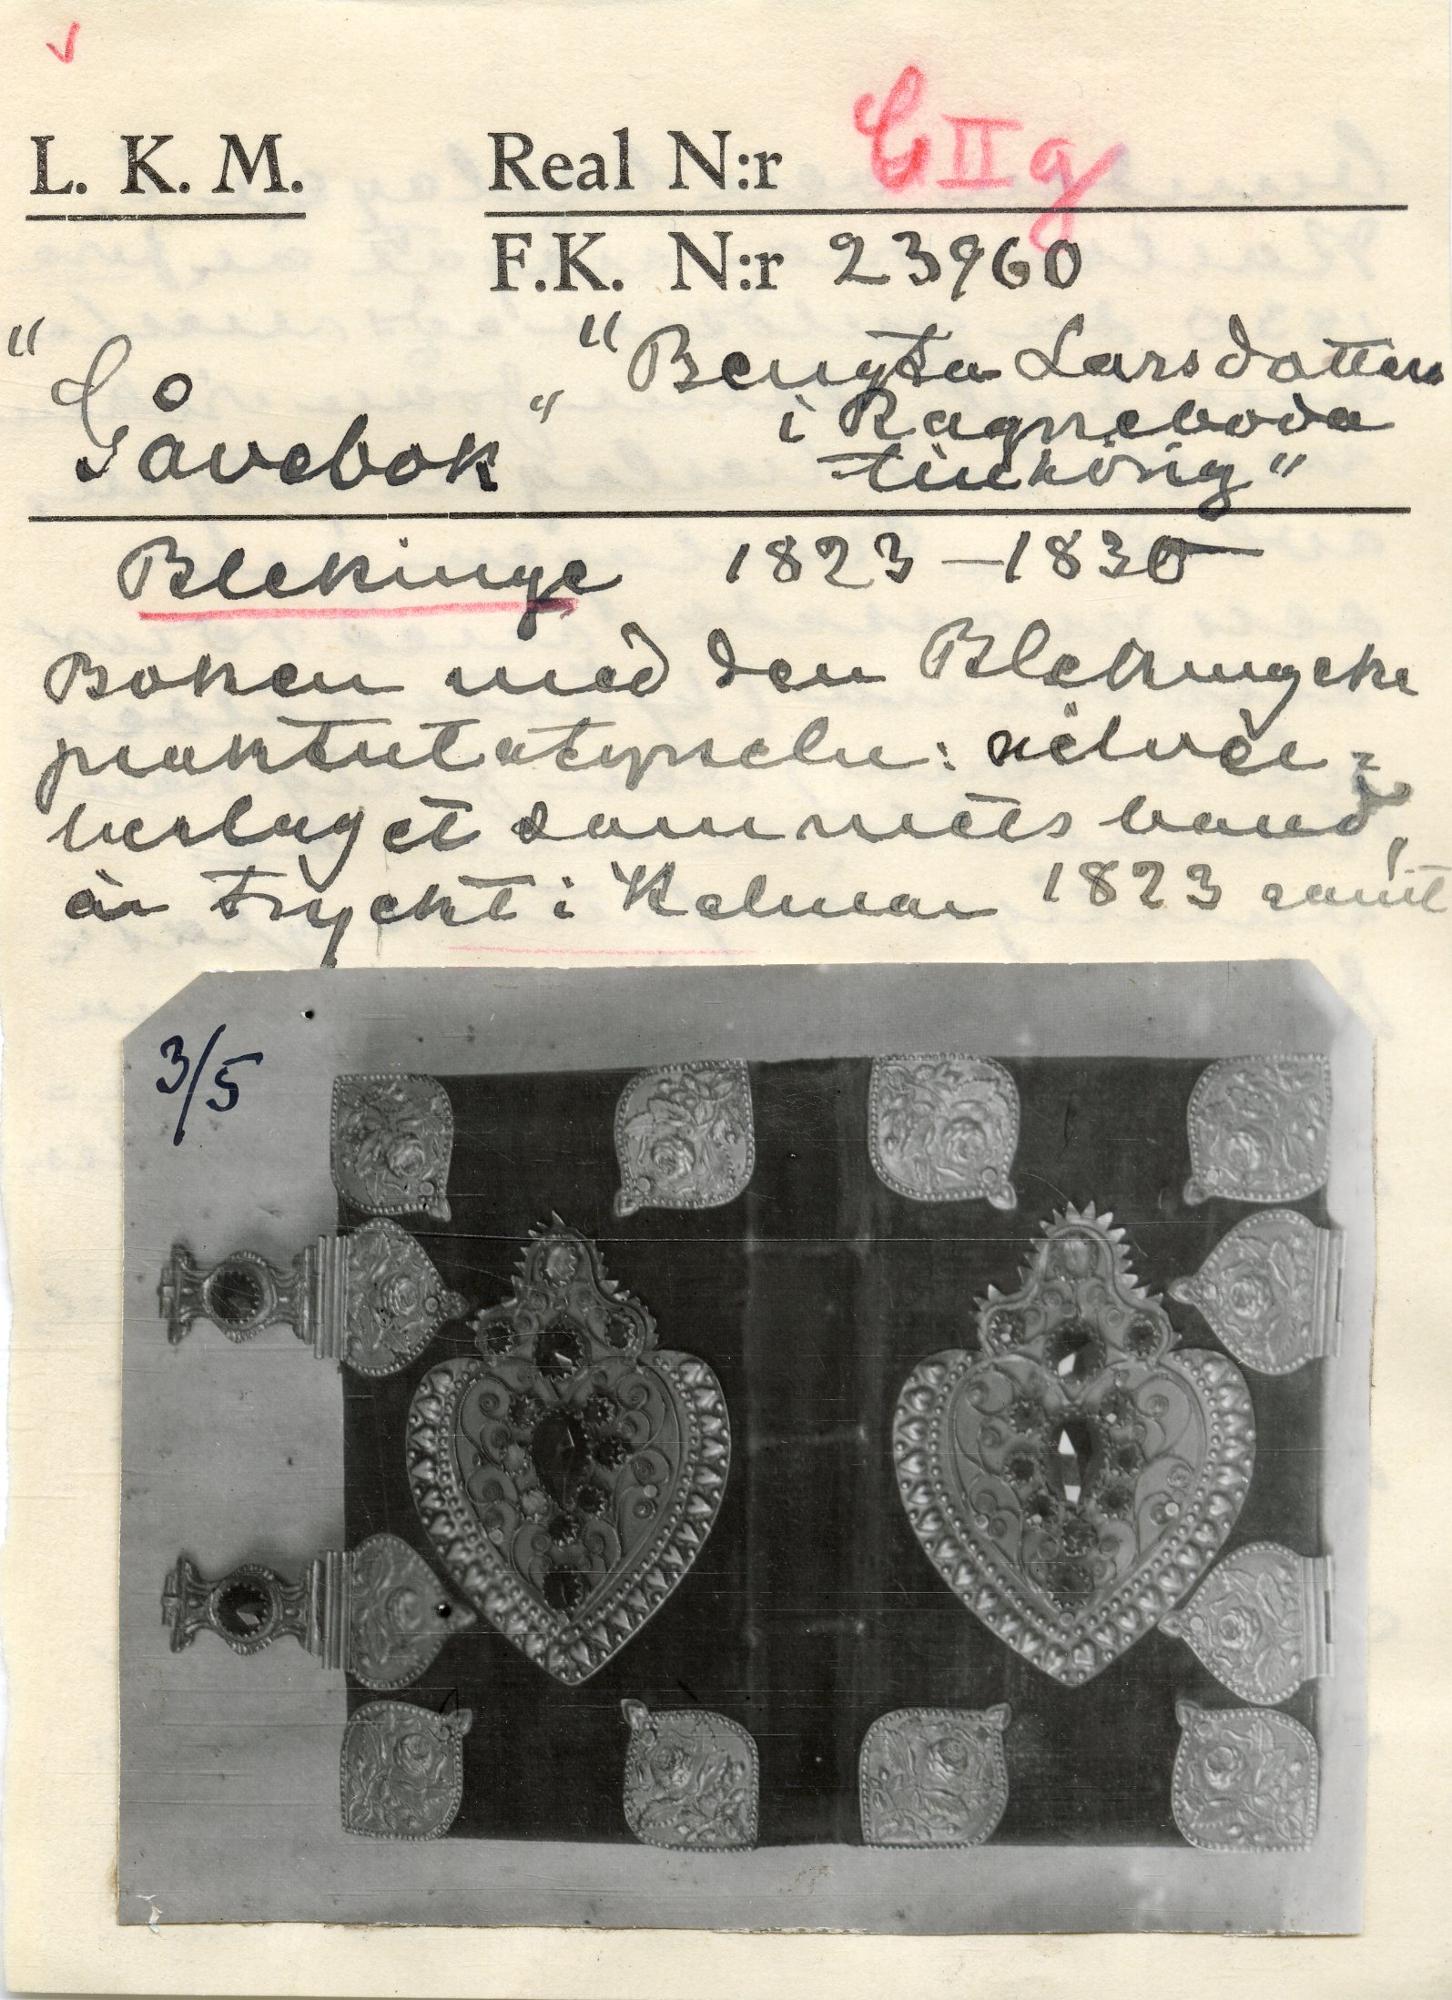 L. K. M.
Real N:r C II g
F.K. N:r 23960
"Gåvebok" "Bengta Larsdotter
i Ragneboda
tillhörig"
Blekinge 1823–1830
Boken med den Blekingske
praktutstyrseln: silver=
beslaget sammets band,
är tryckt i Kalmar 1823 samt
3/5